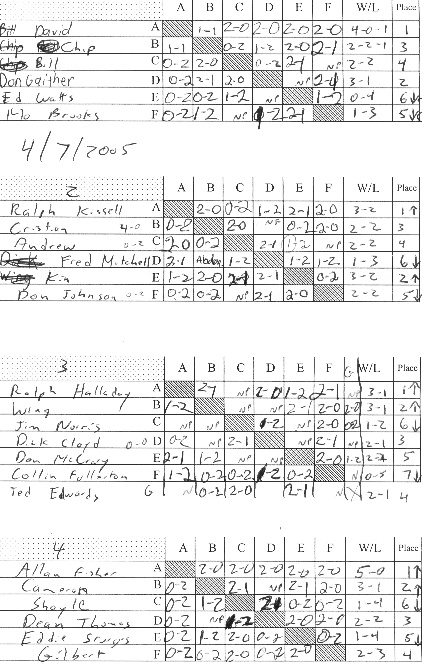 A B C D E F W/L Place
David A 1-1 2-0 2-0 2-0 2-0 4-0-1 1
Chip B 1-1 0-2 1-2 2-0 2-1 2-2-1 3
Bill C 0-2 2-0 0-2 2-1 NP 2-2 4
Don Gaither D 0-2 2-1 2-0 NP 3-1 2
Ed Watts E 0-2 0-2 1-2 1-2 0-4 6↓
Mo Brooks F 0-2 1-2 NP 0-2 2-1 1-3 5
4/7/2005
2 A B C D E F W/L Place
Ralph Kissell A 2-0 0-2 1-2 2-1 2-0 3-2 1↑
B 0-2 2-0 NP 0-2 2-0 2-2 3
Andrew C 2-0 0-2 2-1 NP 2-2 4
Fred Mitchell D 2-1 1-2 1-2 1-2 1-3 6↓
Kin E 1-2 2-0 2-1 0-2 3-2 2↑
Don Johnson F 0-2 0-2 NP 2-1 2-0 2-2 5↓
3 A B C D E F G W/L Place
Ralph Halladay A NP 2-0 1-2 2-1 NP 3-1 1↑
Wing B 1-2 NP NP 2-1 2-0 2-0 3-1 2↑
Jim Norris C NP NP 1-2 NP 2-0 0-2 1-2 6↓
Dick Cloyd D 0-2 NP 2-1 NP 2-1 NP 2-1 3
Don McCrary E 2-1 1-2 NP NP 2-0 1-2 5
Collin Fullerton F 1-2 0-2 0-2 1-2 0-2 0-5 7↓
Ted Edwards G N 0-2 2-0 2-1 N 2-1 4
4 A B C D E F W/L Place
Allan Fisher A 2-0 2-0 2-0 2-0 2-0 5-0 1↑
Cameron B 0-2 2-1 NP 2-1 2-0 3-1 2↑
C 0-2 1-2 2-1 0-2 0-2 1-4 6↓
Dean Thomas D 0-2 NP 1-2 2-0 2-0 2-2 3
Eddie E 0-2 1-2 2-0 0-2 0-2 1-4 5↓
Gilbert F 0-2 0-2 2-0 0-2 2-0 2-3 4